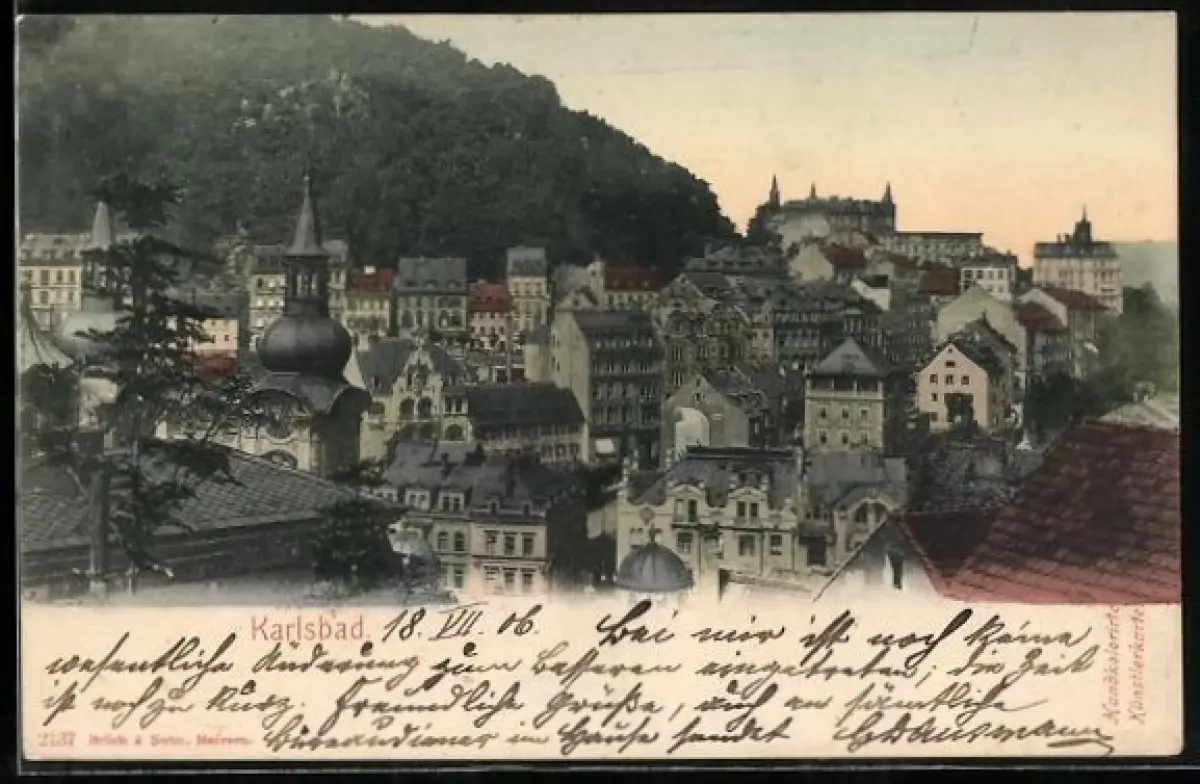 Karlsbad. 18. VII. 06. Bei mir ist noch keine
wesentliche Änderung zum Besseren eingetreten; die Zeit
ist noch zu kurz. Freundliche Grüße, auch an sämtliche
Bureaudiener im Hause sendet
2137 Brück & Sohn, Meissen.
Handkolorierte
Künstlerkarte